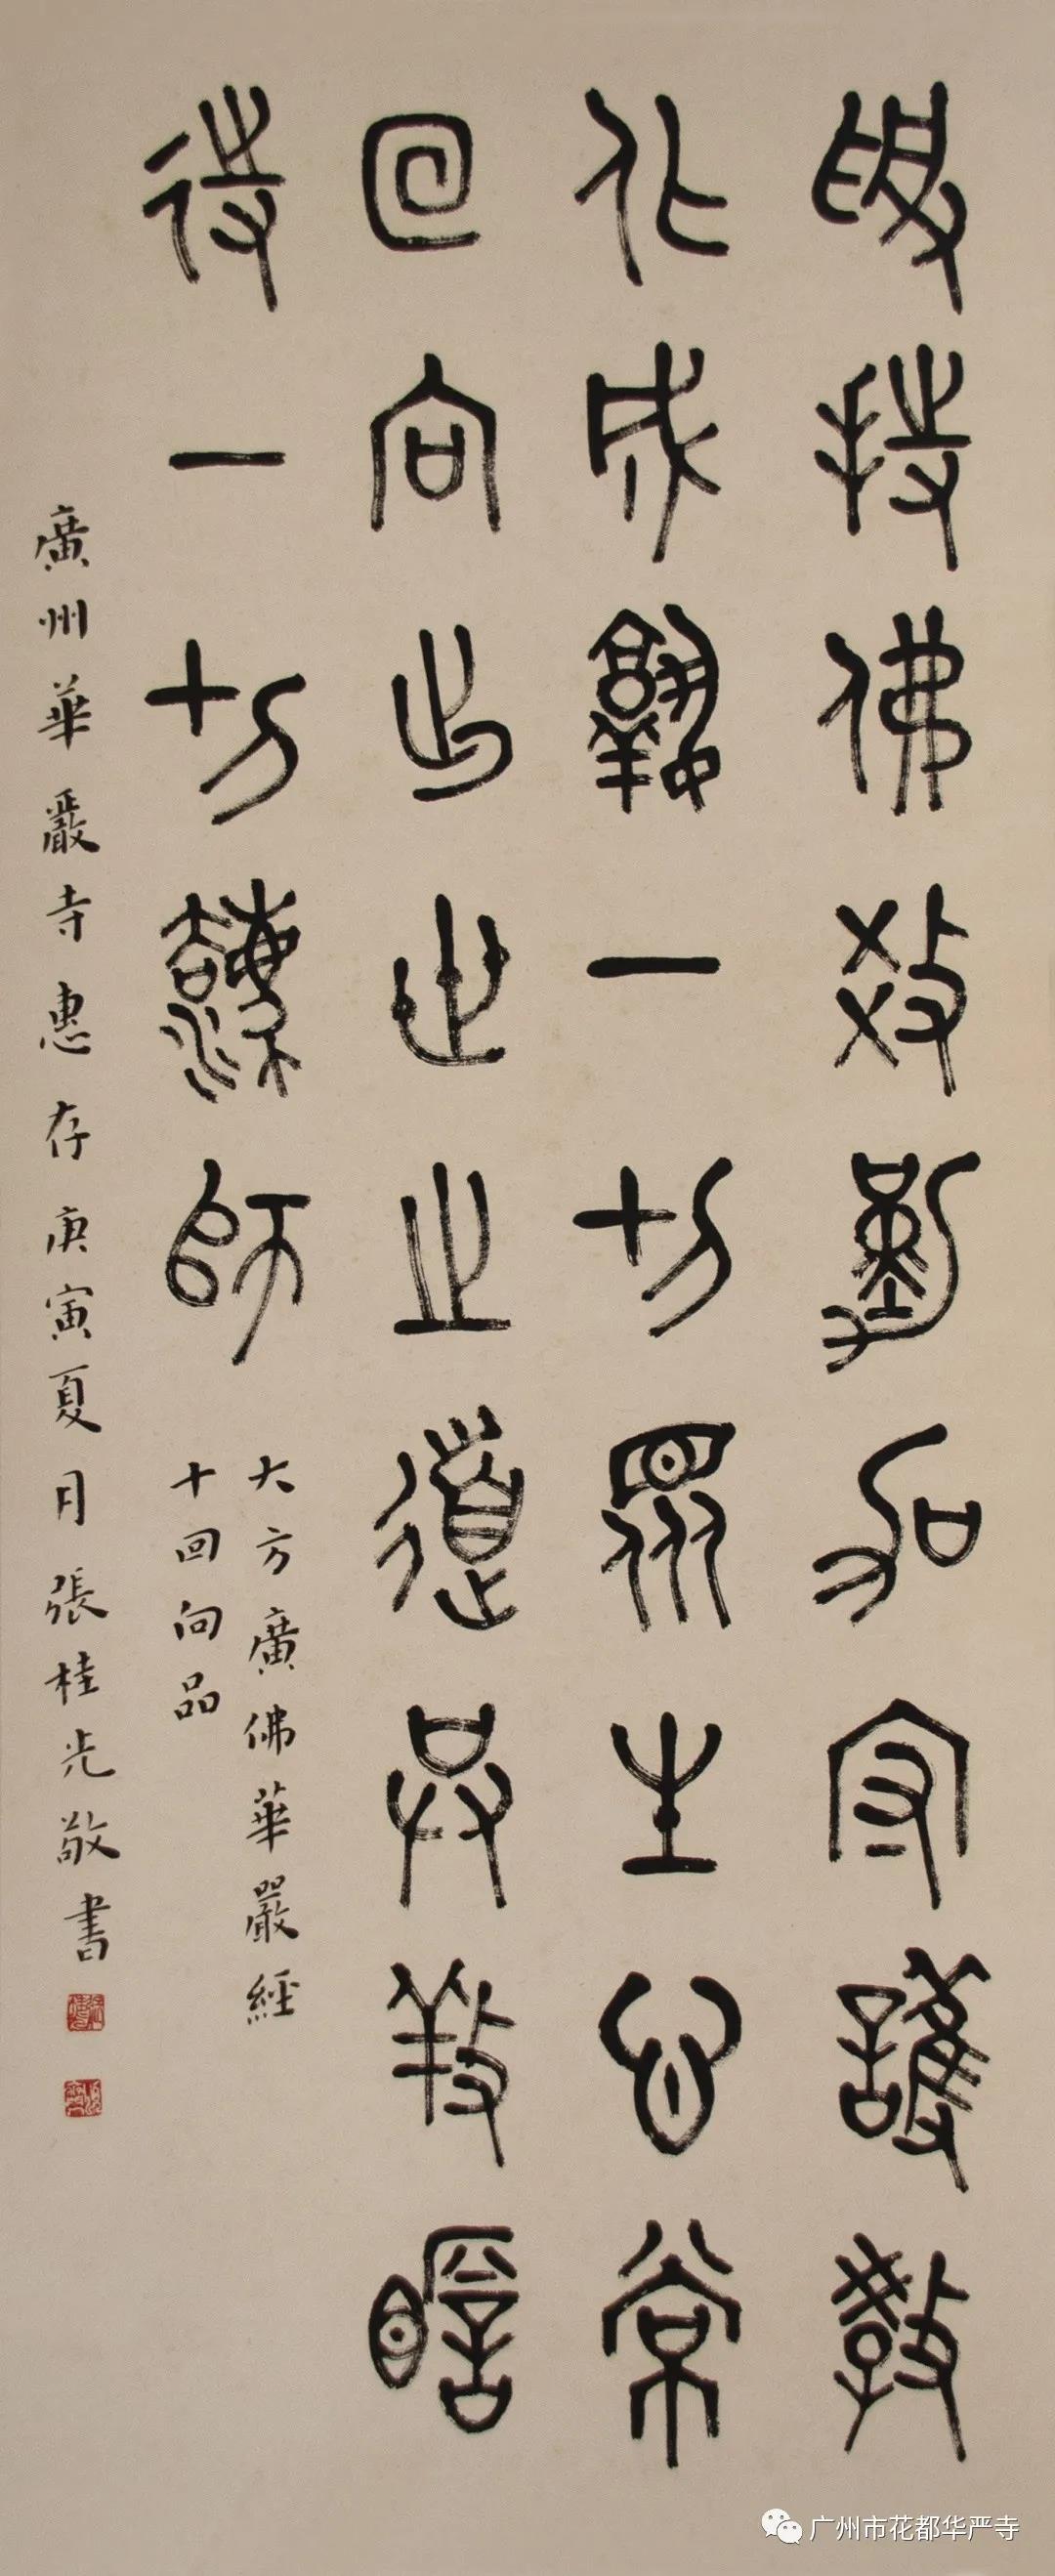 持佛教勤加守護教
化成熟一切眾生心常
回向出世之道供養瞻
待一切法師
大方廣佛華嚴經
十回向品
廣州華嚴寺惠存庚寅夏月張桂光敬書
广州市花都华严寺